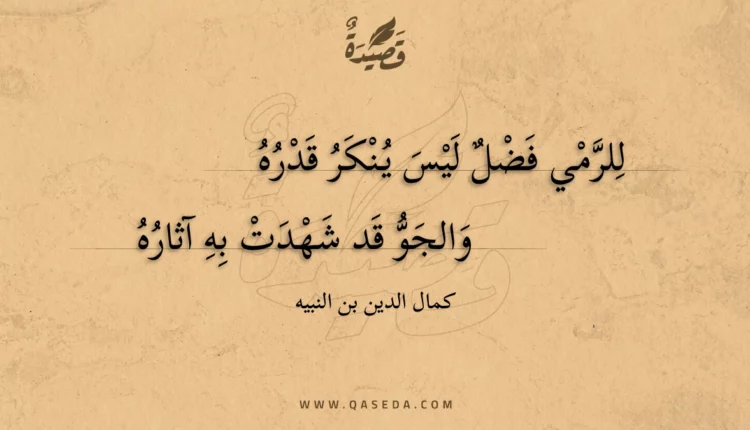 قَصِيدَةٌ
لِلرَّمْي فَضْلٌ لَيْسَ يُنْكَرُ قَدْرُهُ
وَالجَوُّ قَد شَهْدَتْ بِهِ آثارُهُ
كمال الدين بن النبيه
WWW.QASEDA.COM